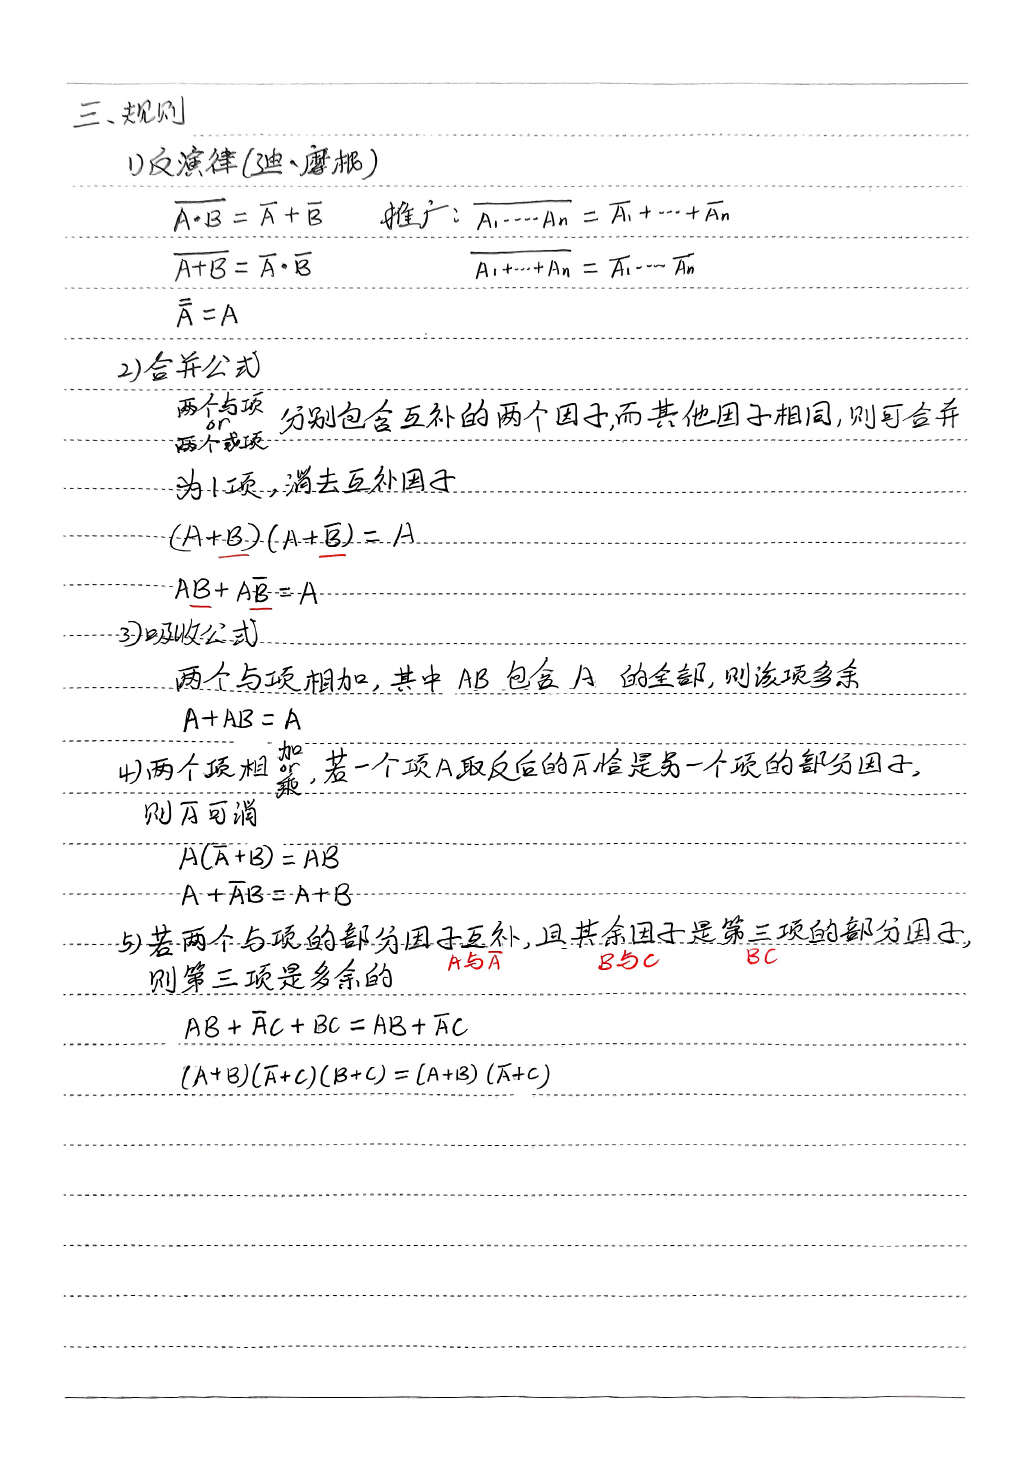 三、规则
1)反演律(迪·摩根)
\overline{A·B} = \overline{A} + \overline{B}  推广: \overline{A₁·····Aₙ} = \overline{A₁} + ··· + \overline{Aₙ}
\overline{A+B} = \overline{A}·\overline{B}  \overline{A₁+···+Aₙ} = \overline{A₁}····\overline{Aₙ}
\overline{\overline{A}} = A
2)合并公式
两个与项 or 两个或项 分别包含互补的两个因子,而其他因子相同,则可合并
为1项,消去互补因子
(A+B)(A+\overline{B}) = A
AB + A\overline{B} = A
3)吸收公式
两个与项相加,其中 AB 包含 A 的全部,则该项多余
A+AB = A
4)两个项相 加 or 乘,若一个项A取反后的\overline{A}恰是另一个项的部分因子,
则\overline{A}可消
A(\overline{A}+B) = AB
A+\overline{A}B = A+B
5)若两个与项的部分因子互补,且其余因子是第三项的部分因子,
A与\overline{A}  B与C  BC
则第三项是多余的
AB + \overline{A}C + BC = AB + \overline{A}C
(A+B)(\overline{A}+C)(B+C) = (A+B)(\overline{A}+C)